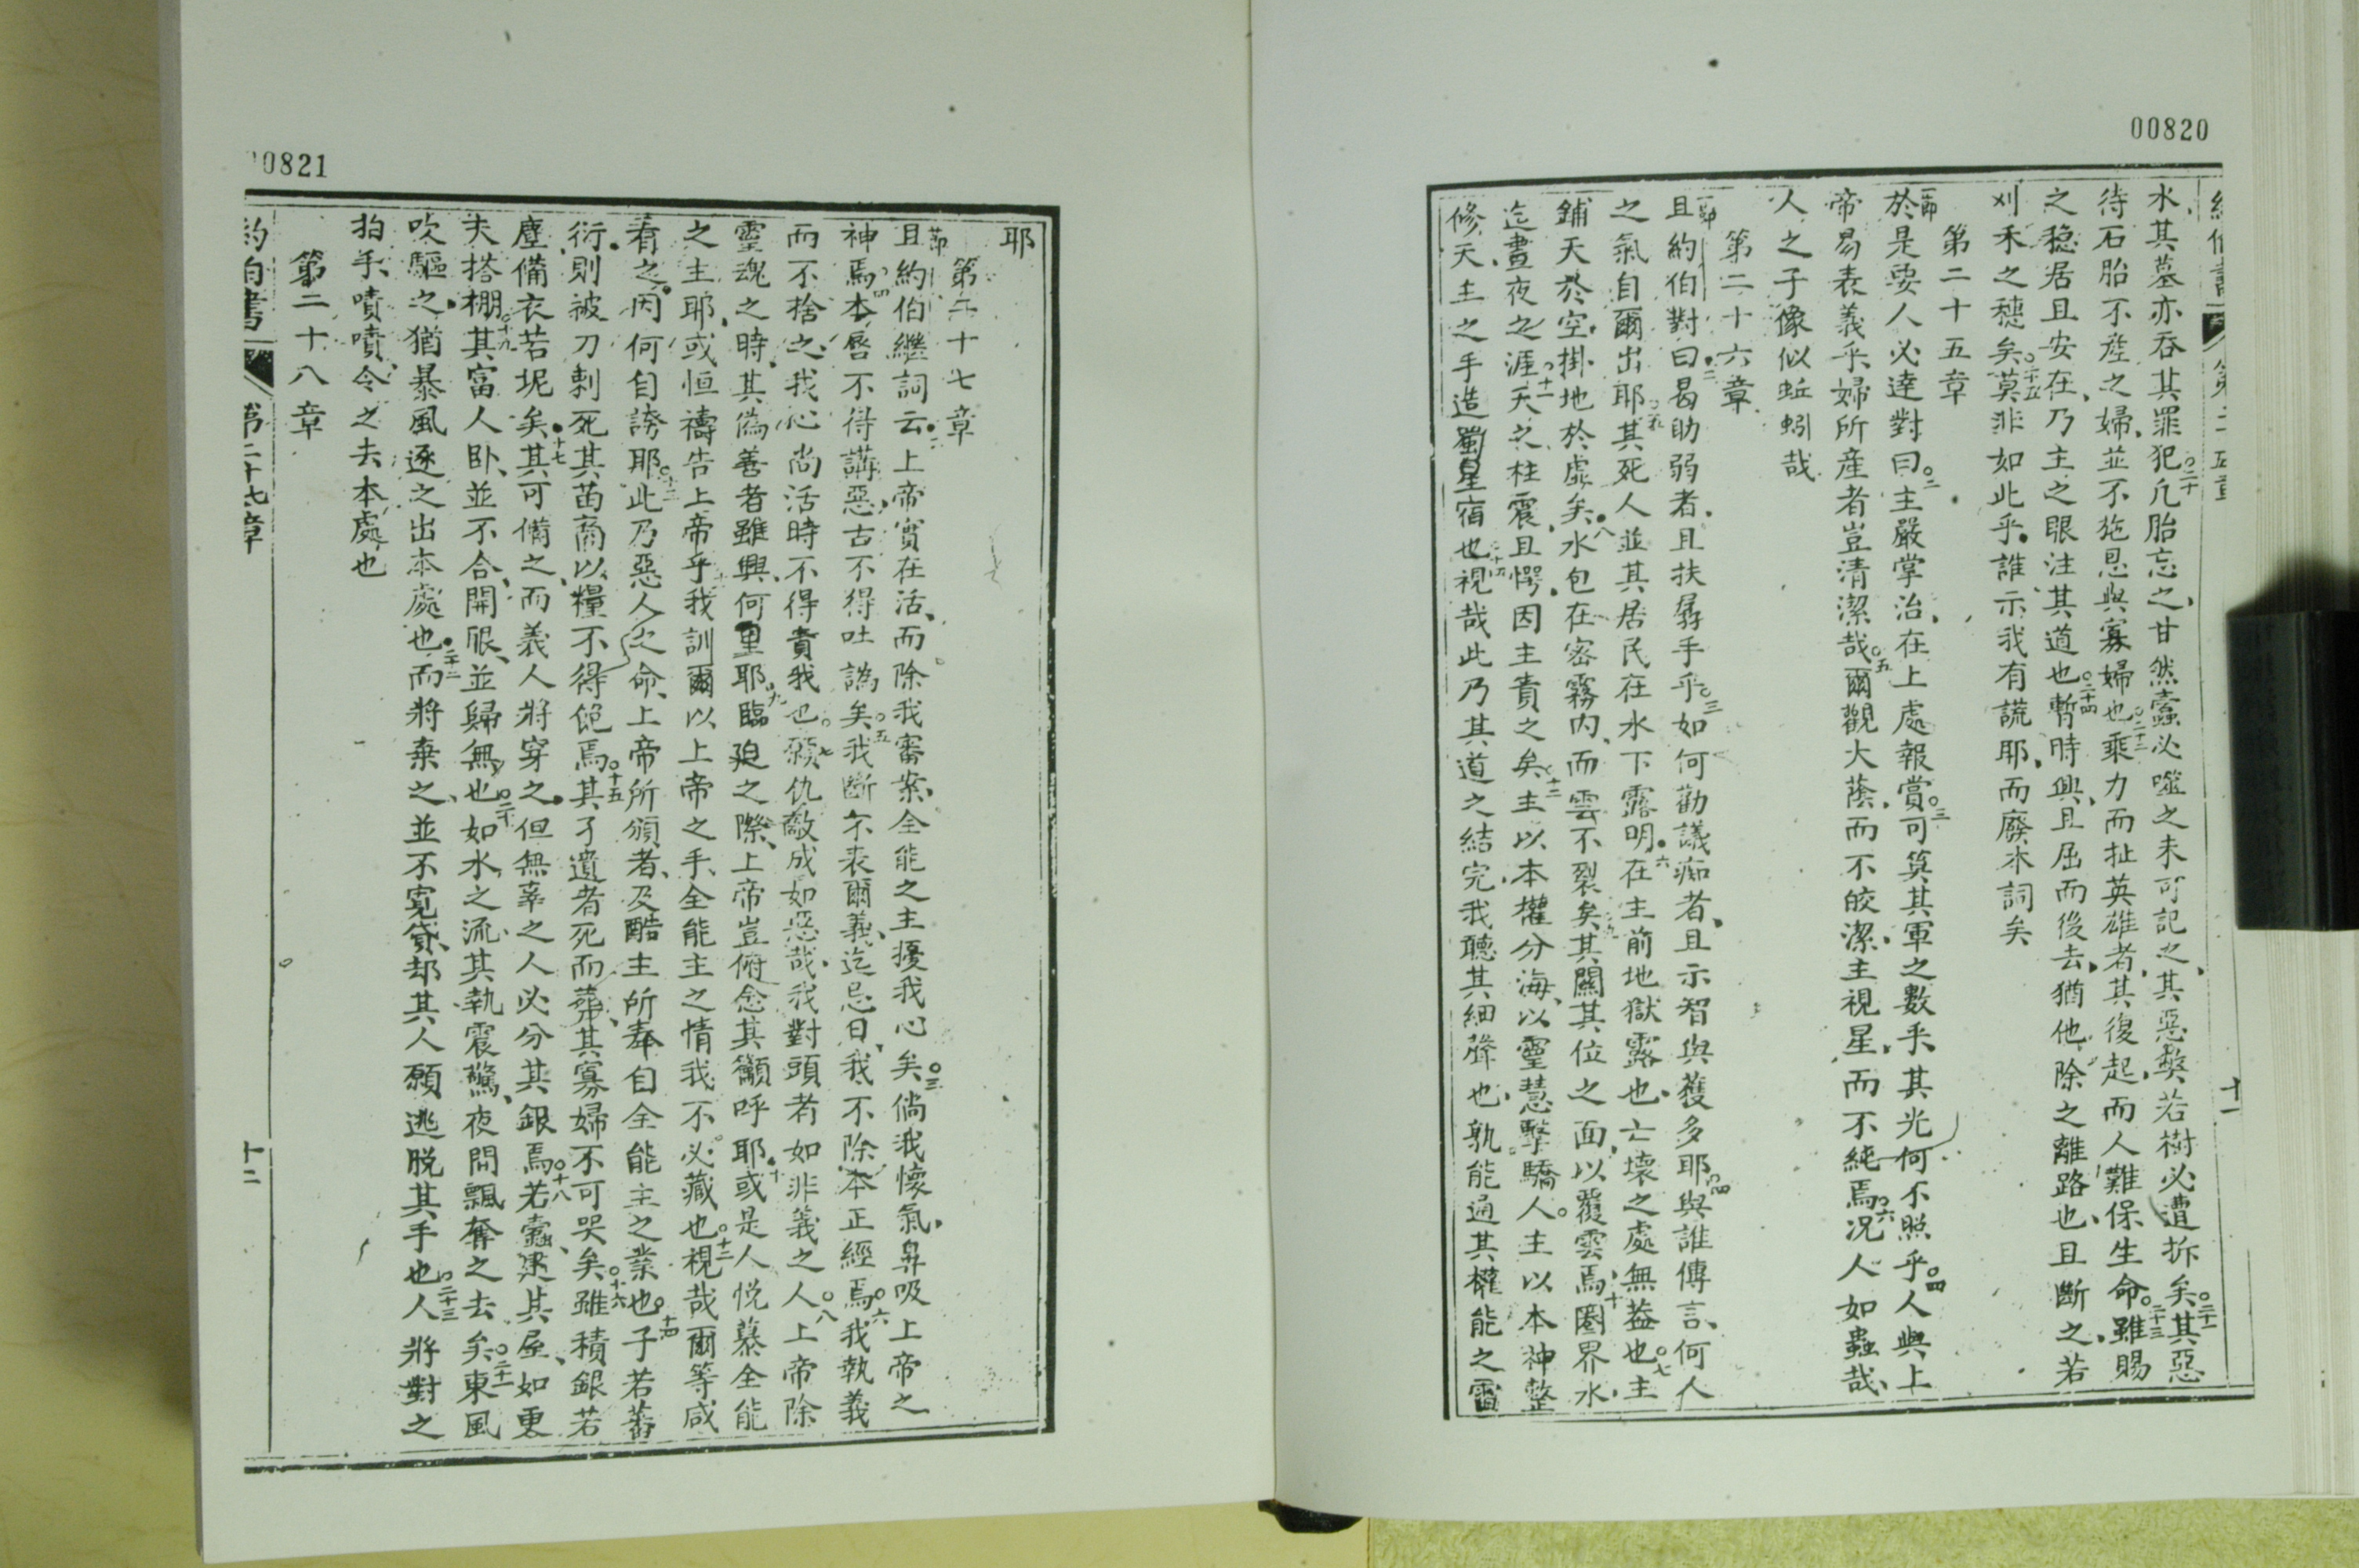 00820
水其墓亦吞其罪犯二十凡胎忘之甘然蠹必噬之未可記之其惡獘若樹必遭拆矣二十一其惡
待石胎不產之婦並不施恩與寡婦也二十二乘力而扯英雄者其復起而人難保生命二十三雖賜
之穩居且安在乃主之眼注其道也二十四暫時興且屈而後去猶他除之離路也且斷之若
刈禾之穗矣二十五莫非如此乎誰示我有謊耶而廢本詞矣
第二十五章
一節於是耍人必達對曰二主嚴掌治在上處報賞三可筭其軍之數乎其光何不照乎四人與上
帝易表義乎婦所產者豈清潔哉五爾觀大蔭而不皎潔主視星而不純焉六况人如蟲哉
人之子像似蚯蚓哉
第二十六章
一節且約伯對曰二曷助弱者且扶孱手乎三如何勸議痴者且示智與獲多耶四與誰傳言何人
之氣自爾出耶五其死人並其居民在水下露明六在主前地獄露也亡壞之處無葢也七主
鋪天於空掛地於虛矣八水包在密霧內而雲不裂矣九其關其位之面以覆雲焉十圈界水
迄晝夜之涯十一天之柱震且愕因主責之矣十二主以本權分海以靈慧擊驕人主以本神整
修天主之手造蜀星宿也視哉此乃其道之結完我聽其細聲也孰能通其權能之雷
十一
00821
耶
第二十七章
一節且約伯繼詞云二上帝實在活而除我審案全能之主擾我心矣三倘我懷氣鼻吸上帝之
神焉四本唇不得講惡古不得吐譌矣五我斷不表爾義迄忌日我不除本正經焉六我執義
而不捨之我心尚活時不得責我也七願仇敵成如惡哉我對頭者如非義之人八上帝除
靈魂之時其偽善者雖興何里耶九臨廹之際上帝豈俯念其籲呼耶十或是人悅慕全能
之主耶或恒禱告上帝乎十一我訓爾以上帝之手全能主之情我不必藏也十二視哉爾等咸
看之因何自誇耶十三此乃惡人之命上帝所頒者及酷主所奉自全能主之業也十四子若蕃
衍則被刀刺死其苗裔以糧不得飽焉十五其孑遺者死而葬其寡婦不可哭矣十六雖積銀若
塵備衣若坭矣十七其可備之而義人將穿之但無辜之人必分其銀焉十八若蠹建其屋如更
夫搭棚十九其富人卧並不合開眼並歸無也二十如水之流其執震驚夜間飄奪之去矣二十一東風
吹驅之猶暴風逐之出本處也二十二而將棄之並不寬貸却其人願逃脫其手也二十三人將對之
拍手噴噴令之去本處也
第二十八章
約伯書
第二十七章
十二